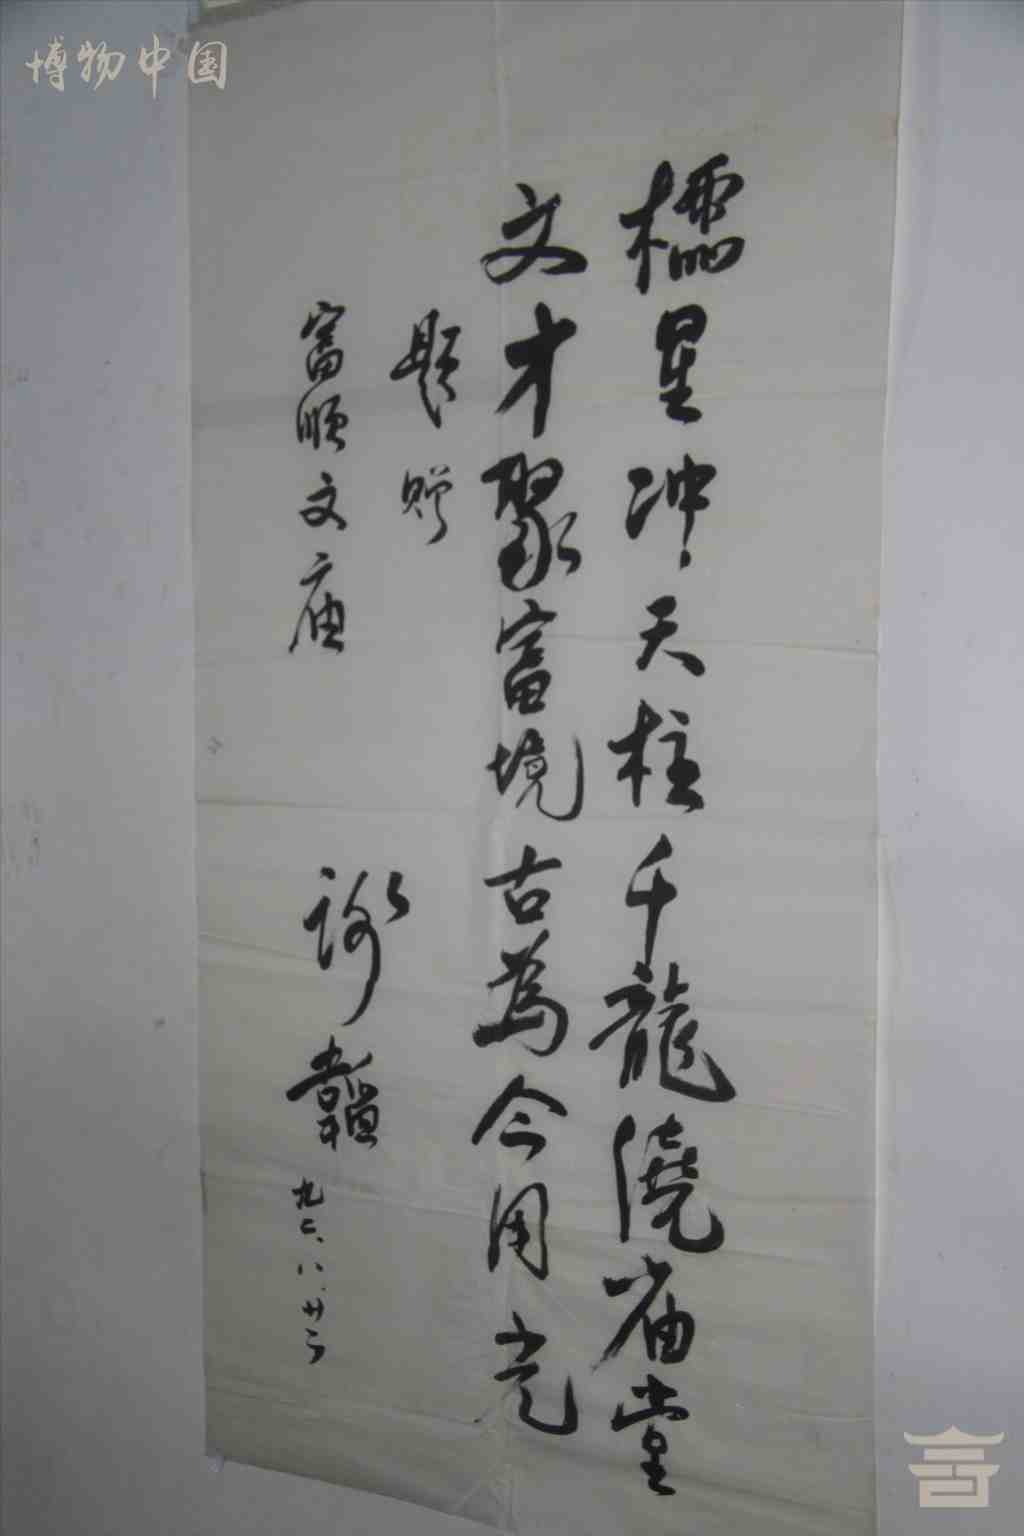 博物中国
櫺星冲天柱千龍繞庙堂
文才聚富境古為今用光
题赠
富顺文庙
谢韜
九二、八、廿二